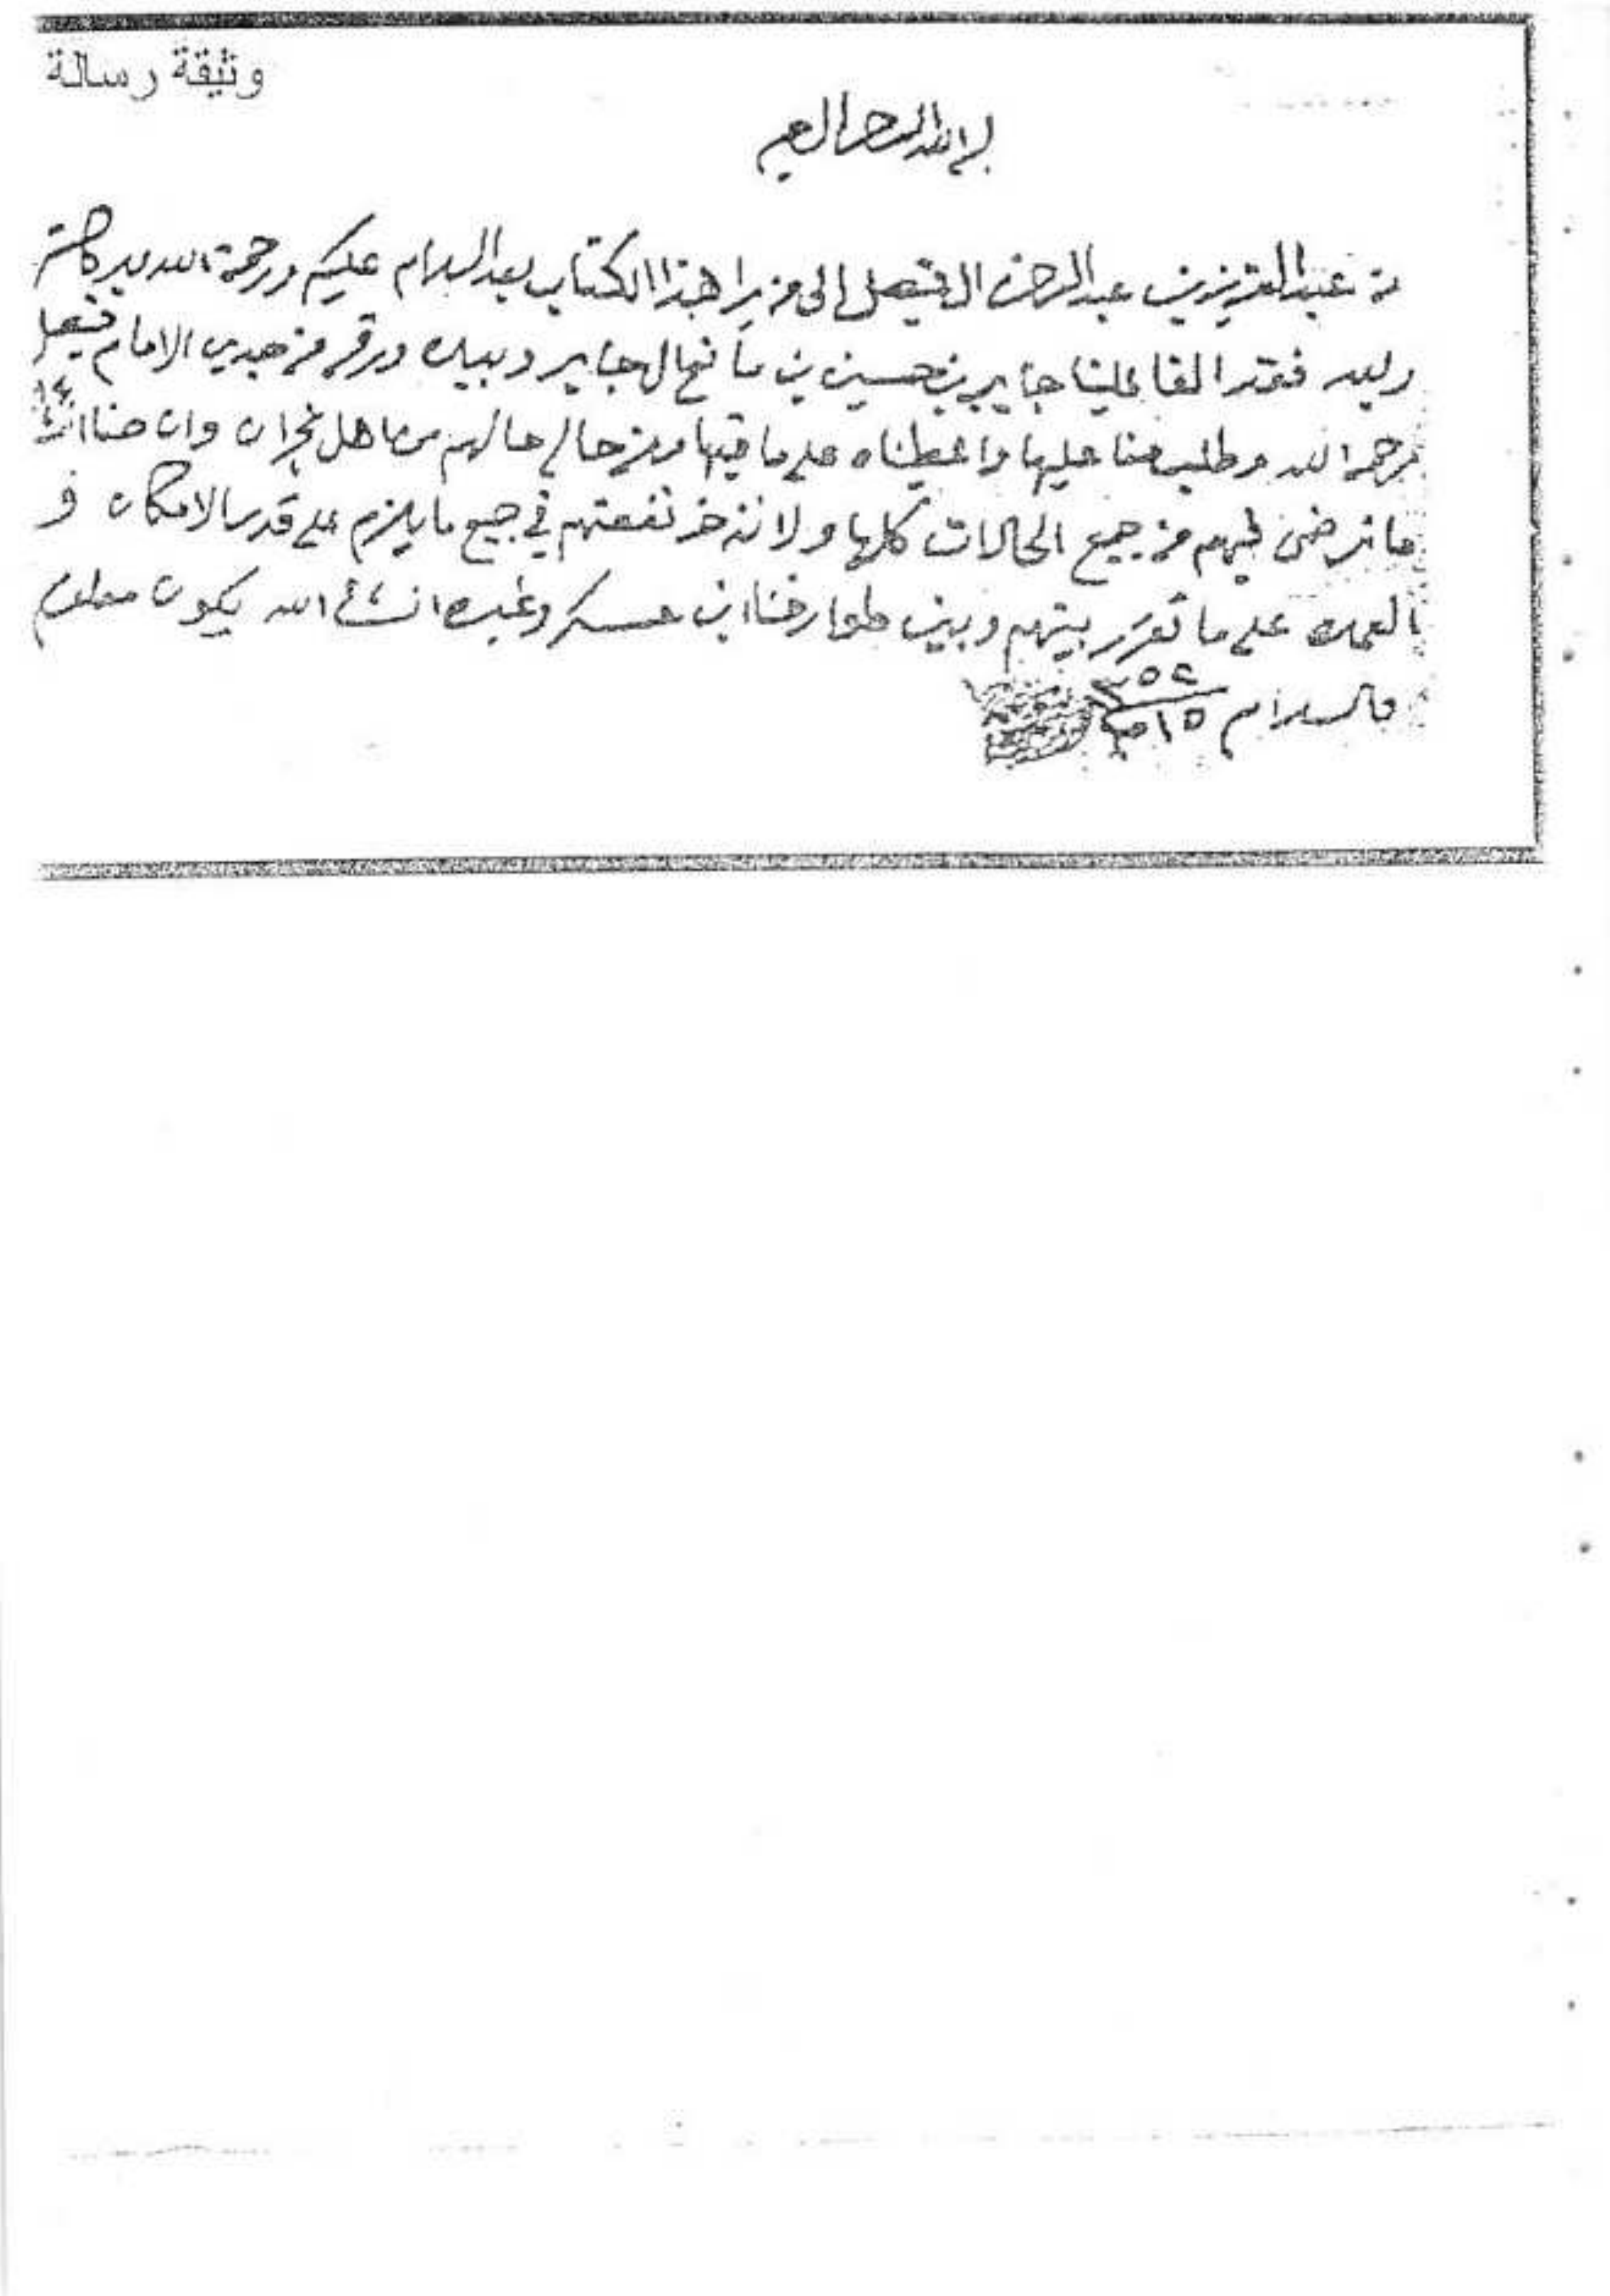 وثيقة رسالة
بسم الله الرحمن الرحيم
من عبدالعزيز بن عبدالرحمن ال فيصل الى من يرا هذا الكتاب بعد السلام عليكم ورحمة الله وبركاته
وبعد فقد الفا علينا جابر بن حسين بن مانع ال جابر وبيده ورقه من جدي الامام فيصل
رحمه الله وطلب منا عليها واعطيناه على ما فيها ومن حال حالهم من اهل نجران وان حنا انشاء الله
ما نرضى فيهم من جميع الحالات كلها ولا نذخر نفعتهم في جميع ما يلزم على قدر الامكان و
العمده على ما تقرر بينهم وبين طوارفنا ابن عسكر وغيره انشاء الله يكون معلوم
والسلام ١٥ ٣٥٢